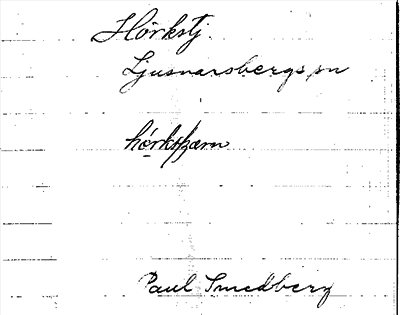 Hörkstj.
Ljusnarsbergs sn
hö̱rkstjærn
Paul Smedberg